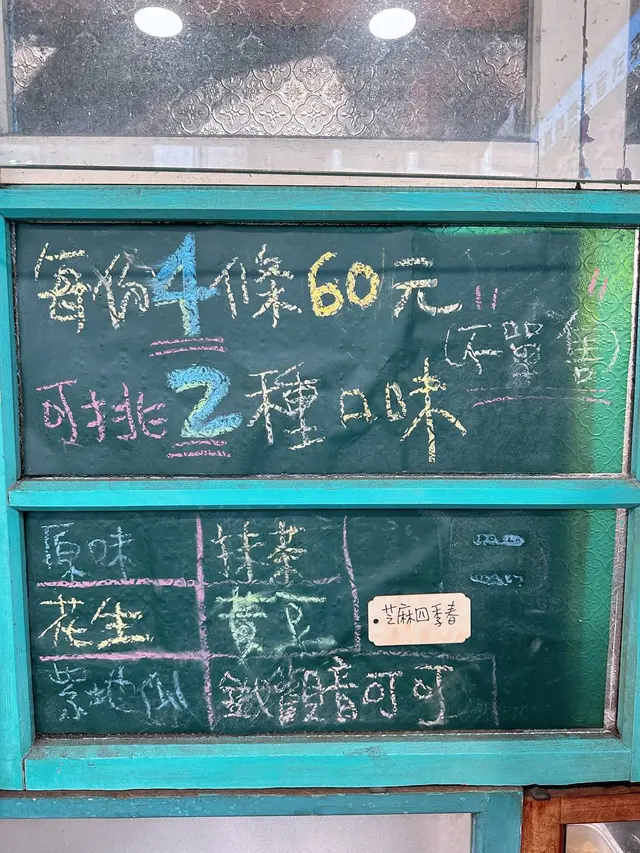 每份4條60元
(不單售)
可挑2種口味
原味 抹茶
花生 黃豆 芝麻四季春
紫地瓜 鐵觀音可可